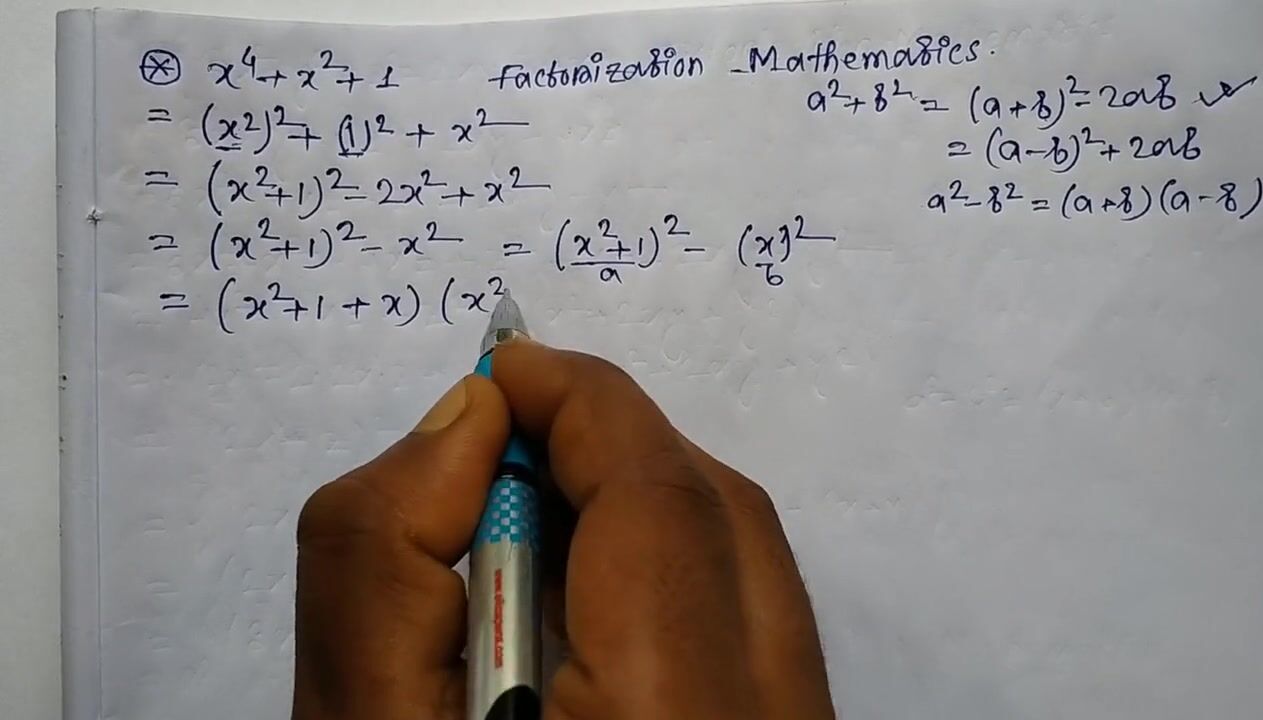 x⁴ + x² + 1 Factorization - Mathematics.
= (x²)² + (1)² + x²
= (x²+1)² - 2x² + x²
= (x²+1)² - x² = (x²+1)² - (x)²
a b
= (x²+1 + x) (x²
a² + b² = (a+b)² - 2ab ✓
= (a-b)² + 2ab
a² - b² = (a+b)(a-b)